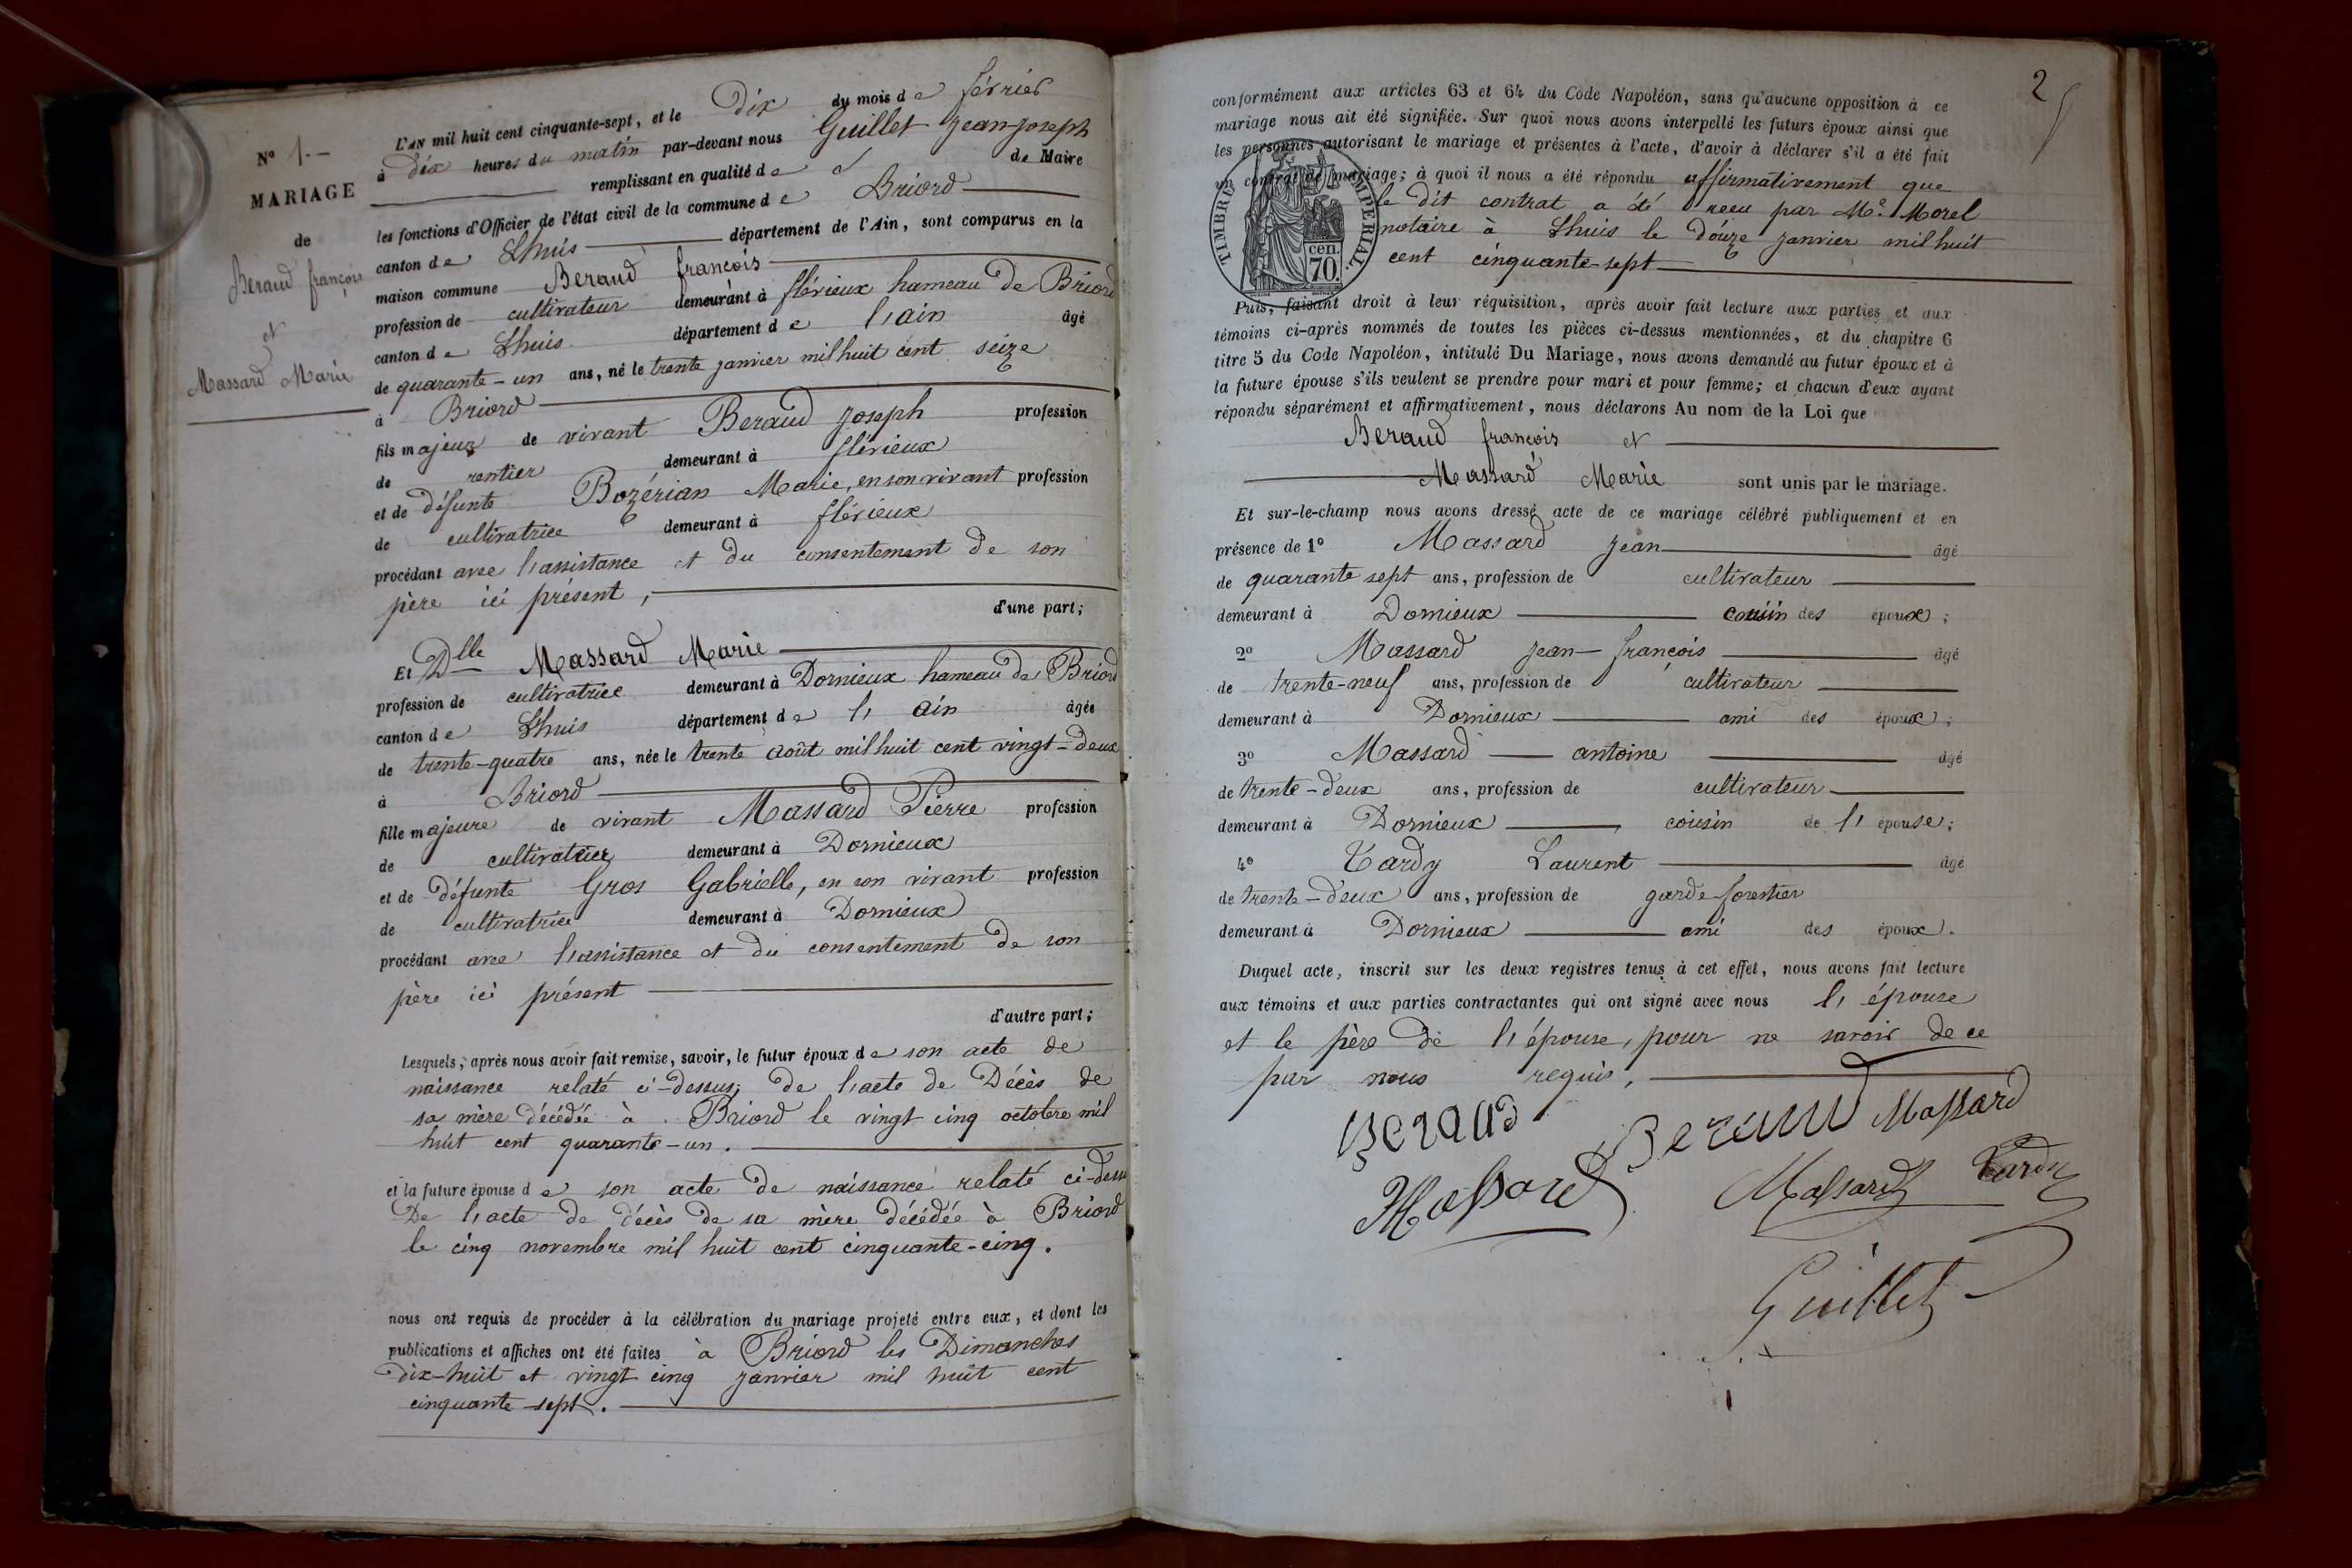 L'AN mil huit cent cinquante-sept, et le Dix du mois de février
à dix heures du matin par-devant nous Guillet Jean-Joseph
remplissant en qualité de de Maire
les fonctions d'Officier de l'état civil de la commune de Briord
canton de Lhuis département de l'Ain, sont comparus en la
maison commune Beraud françois
profession de cultivateur demeurant à flérieux hameau de Briord
canton de Lhuis département de l'ain âgé
de quarante-un ans, né le trente janvier mil huit cent seize
à Briord
fils majeur de vivant Beraud Joseph profession
de rentier demeurant à flérieux
et de défunte Bozérian Marie, en son vivant profession
de cultivatrice demeurant à flérieux
procédant avec l'assistance et du consentement de son
père ici présent,
d'une part;
Et Dlle Massard Marie
profession de cultivatrice demeurant à Dornieux hameau de Briord
canton de Lhuis département de l'ain âgée
de trente-quatre ans, née le trente août mil huit cent vingt-deux
à Briord
fille majeure de vivant Massard Pierre profession
de demeurant à Dornieux
et de défunte Gros Gabrielle, en son vivant profession
de cultivatrice demeurant à Dornieux
procédant avec l'assistance et du consentement de son
père ici présent
d'autre part;
Lesquels, après nous avoir fait remise, savoir, le futur époux de son acte de
naissance relaté ci-dessus; de l'acte de Décès de
sa mère décédée à Briord le vingt cinq octobre mil
huit cent quarante-un.
et la future épouse de son acte de naissance relaté ci-dessu
De l'acte de décès de sa mère décédée à Briord
le cinq novembre mil huit cent cinquante-cinq.
nous ont requis de procéder à la célébration du mariage projeté entre eux, et dont les
publications et affiches ont été faites à Briord les Dimanches
dix-huit et vingt cinq janvier mil huit cent
cinquante-sept.
N° 1.-
MARIAGE
de
Beraud françois
et
Massard Marie
2
conformément aux articles 63 et 64 du Code Napoléon, sans qu'aucune opposition à ce
mariage nous ait été signifiée. Sur quoi nous avons interpellé les futurs époux ainsi que
les personnes autorisant le mariage et présentes à l'acte, d'avoir à déclarer s'il a été fait
un contrat de mariage; à quoi il nous a été répondu affirmativement que
le dit contrat a été recu par Me. Morel
notaire à Lhuis le douze janvier mil huit
cent cinquante-sept
TIMBRE IMPERIAL.
cen.
70.
Puis, faisant droit à leur réquisition, après avoir fait lecture aux parties et aux
témoins ci-après nommés de toutes les pièces ci-dessus mentionnées, et du chapitre 6
titre 5 du Code Napoléon, intitulé Du Mariage, nous avons demandé au futur époux et à
la future épouse s'ils veulent se prendre pour mari et pour femme; et chacun d'eux ayant
répondu séparément et affirmativement, nous déclarons Au nom de la Loi que
Beraud françois et
Massard Marie sont unis par le mariage.
Et sur-le-champ nous avons dressé acte de ce mariage célébré publiquement et en
présence de 1° Massard Jean âgé
de quarante sept ans, profession de cultivateur
demeurant à Dornieux cousin des époux;
2° Massard Jean-françois âgé
de trente-neuf ans, profession de cultivateur
demeurant à Dornieux ami des époux;
3° Massard antoine âgé
de trente-deux ans, profession de cultivateur
demeurant à Dornieux, cousin de l'épouse;
4° Tardy Laurent âgé
de trente-deux ans, profession de garde-forestier
demeurant à Dornieux ami des époux.
Duquel acte, inscrit sur les deux registres tenus à cet effet, nous avons fait lecture
aux témoins et aux parties contractantes qui ont signé avec nous l'épouse
et le père de l'épouse, pour ne savoir de ce
par nous requis,
Beraud Beraud Massard
Massard Massard Tardy
Guillet